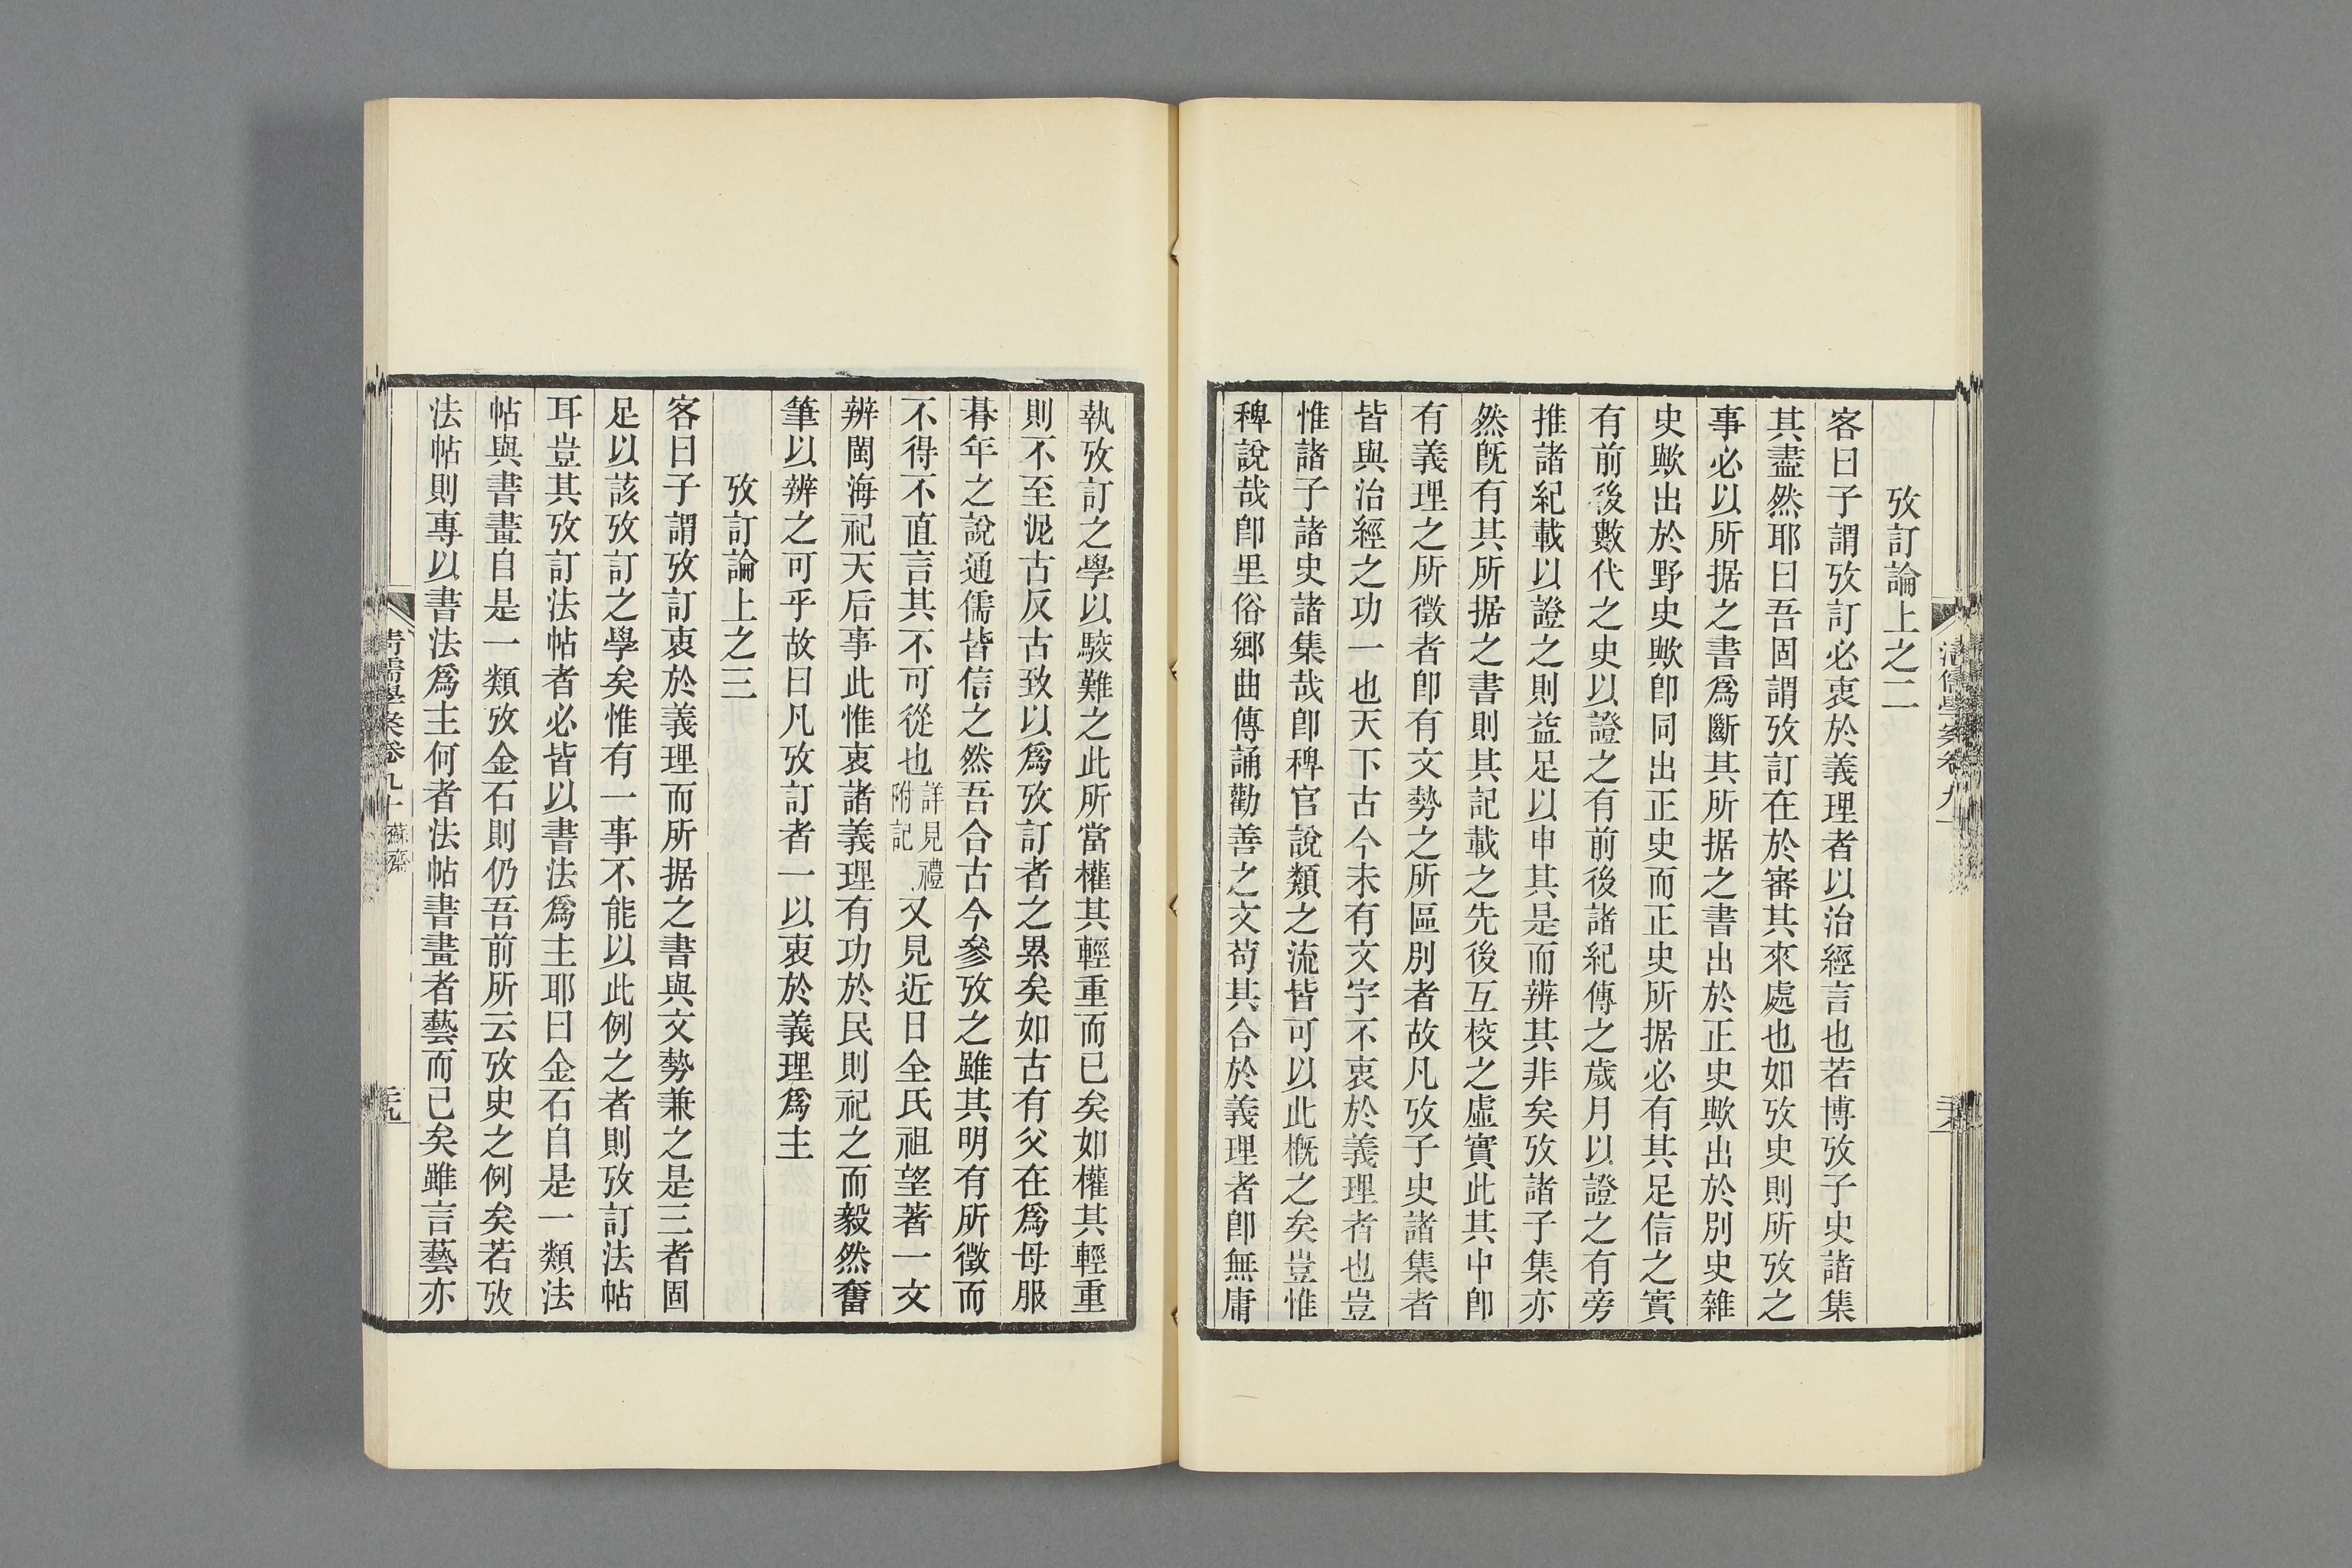 攷訂論上之二
客曰子謂攷訂必衷於義理者以治經言也若博攷子史諸集
其盡然耶曰吾固謂攷訂在於審其來處也如攷史則所攷之
事必以所据之書爲斷其所据之書出於正史歟出於別史雜
史歟出於野史歟卽同出正史而正史所据必有其足信之實
有前後數代之史以證之有前後諸紀傳之歲月以證之有旁
推諸紀載以證之則益足以申其是而辨其非矣攷諸子集亦
然旣有其所据之書則其記載之先後互校之虛實此其中卽
有義理之所徵者卽有文勢之所區別者故凡攷子史諸集者
皆與治經之功一也天下古今未有文字不衷於義理者也豈
惟諸子諸史諸集哉卽稗官說類之流皆可以此槪之矣豈惟
稗說哉卽里俗鄉曲傳誦勸善之文苟其合於義理者卽無庸
執攷訂之學以駮難之此所當權其輕重而已矣如權其輕重
則不至泥古反古致以爲攷訂者之累矣如古有父在爲母服
朞年之說通儒皆信之然吾合古今參攷之雖其明有所徵而
不得不直言其不可從也詳見禮附記又見近日全氏祖望著一文
辨閩海祀天后事此惟衷諸義理有功於民則祀之而毅然奮
筆以辨之可乎故曰凡攷訂者一以衷於義理爲主
攷訂論上之三
客曰子謂攷訂衷於義理而所据之書與文勢兼之是三者固
足以該攷訂之學矣惟有一事不能以此例之者則攷訂法帖
耳豈其攷訂法帖者必皆以書法爲主耶曰金石自是一類法
帖與書畫自是一類攷金石則仍吾前所云攷史之例矣若攷
法帖則專以書法爲主何者法帖書畫者藝而已矣雖言藝亦
清儒學案卷九十 蘇齋